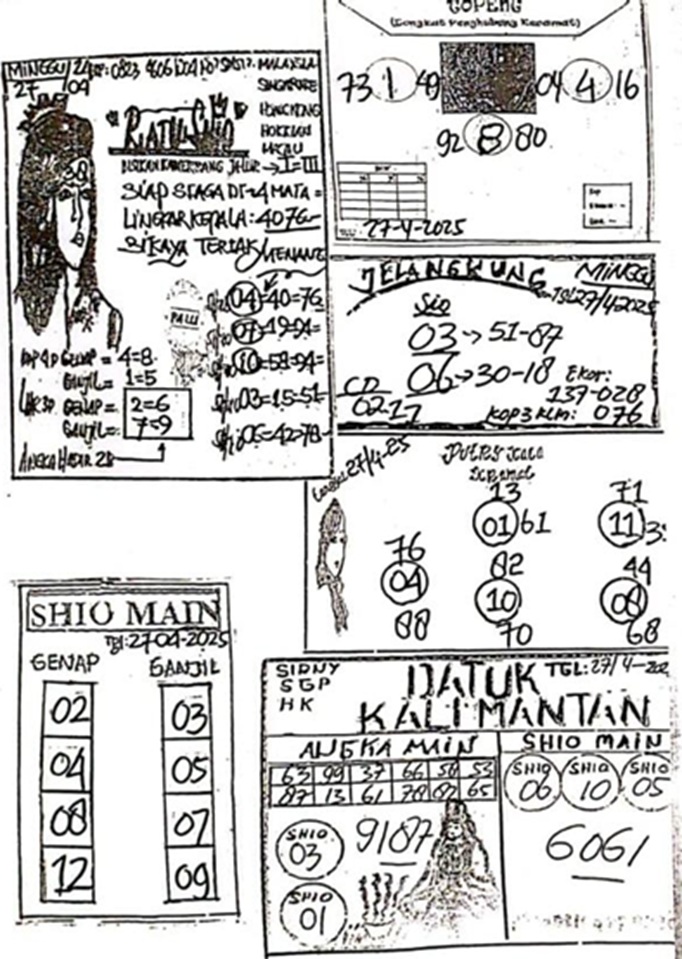 GOPENG
(Longkat Penghubung Keramat)
73 1 49
04 4 16
92 8 80
27-4-2025
MINGGU
27 04
MALAYSIA
SINGAPORE
HONGKONG
HOKKIAN
MACAU
RIATU SHIO
I=III
SIAP SIAGA DI-4 MATA=
LINGKAR KEPALA: 4076-
BIKAYA TERIAK MENANG
04=40=76
07=19=94=
10=58=94=
03=15=51-
06=42=78-
PALU
GENAP= 4=8
GANJIL= 1=5
GENAP= 2=6
GANJIL= 7=9
JELANGKUNG
MINGGU
TGL 27/4-2025
Sio
03→51-87
06→30-18
CD
02.17
Ekor:
137-028
KOP3KLM: 076
27/4-25
13
01 61
71
11
76
04
88
82
10
70
44
08
68
SHIO MAIN
Tgl:27-04-2025
GENAP GANJIL
02 03
04 05
08 07
12 09
SIDNY
SGP
HK
DATUK
KALIMANTAN
TGL:27/4-202
ANGKA MAIN
63 99 37 66 56 53
87 13 61 78 82 65
SHIO
03
9187
SHIO
01
SHIO MAIN
SHIO 06
SHIO 10
SHIO 05
6061